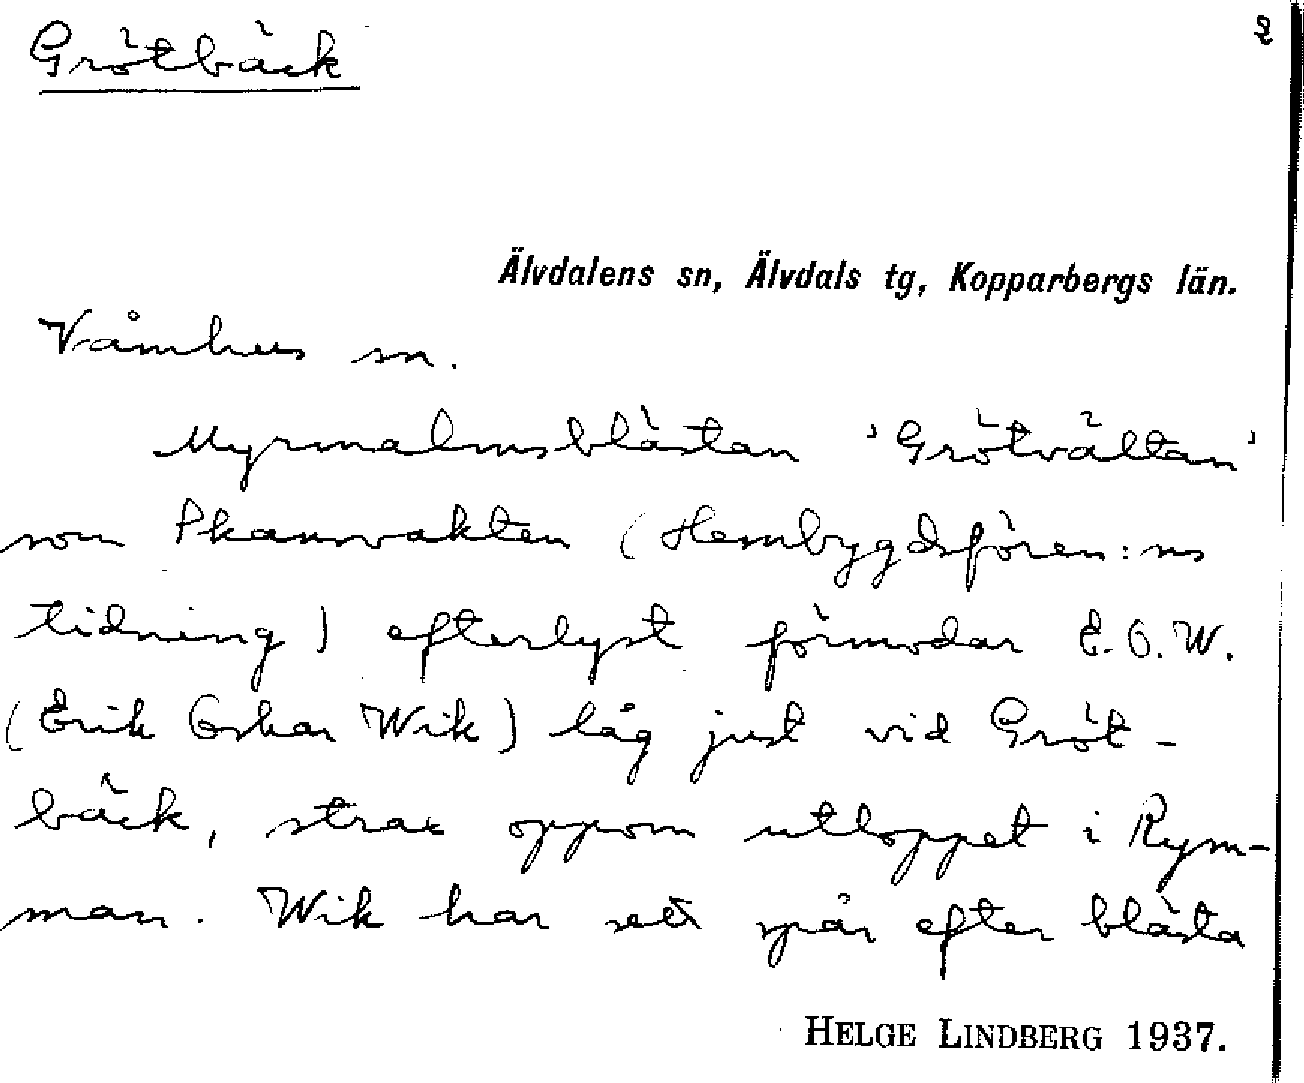 Grötbäck
2
Älvdalens sn, Älvdals tg, Kopparbergs län.
Våmhus sn.
Myrmalmsblästan 'Grötvältan'
som Skansvakten (Hembygdsfören:ns
tidning) efterlyst förmodar E.O.W.
(Erik Oskar Wik) låg just vid Gröt-
bäck, strax oppom utloppet i Rym-
man. Wik har sett spår efter blästa
HELGE LINDBERG 1937.